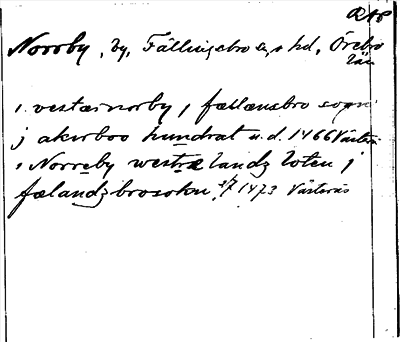 RAP
Norrby, by, Fällingsbro sn, s hd, Örebro
län
i vestærnorby i fællænsbro sopn
j akirboo hundrat u.d. 1466 Västerå
i Norreby westræ landz loten j
fælandzbrosokn 2/7 1473 Västerås